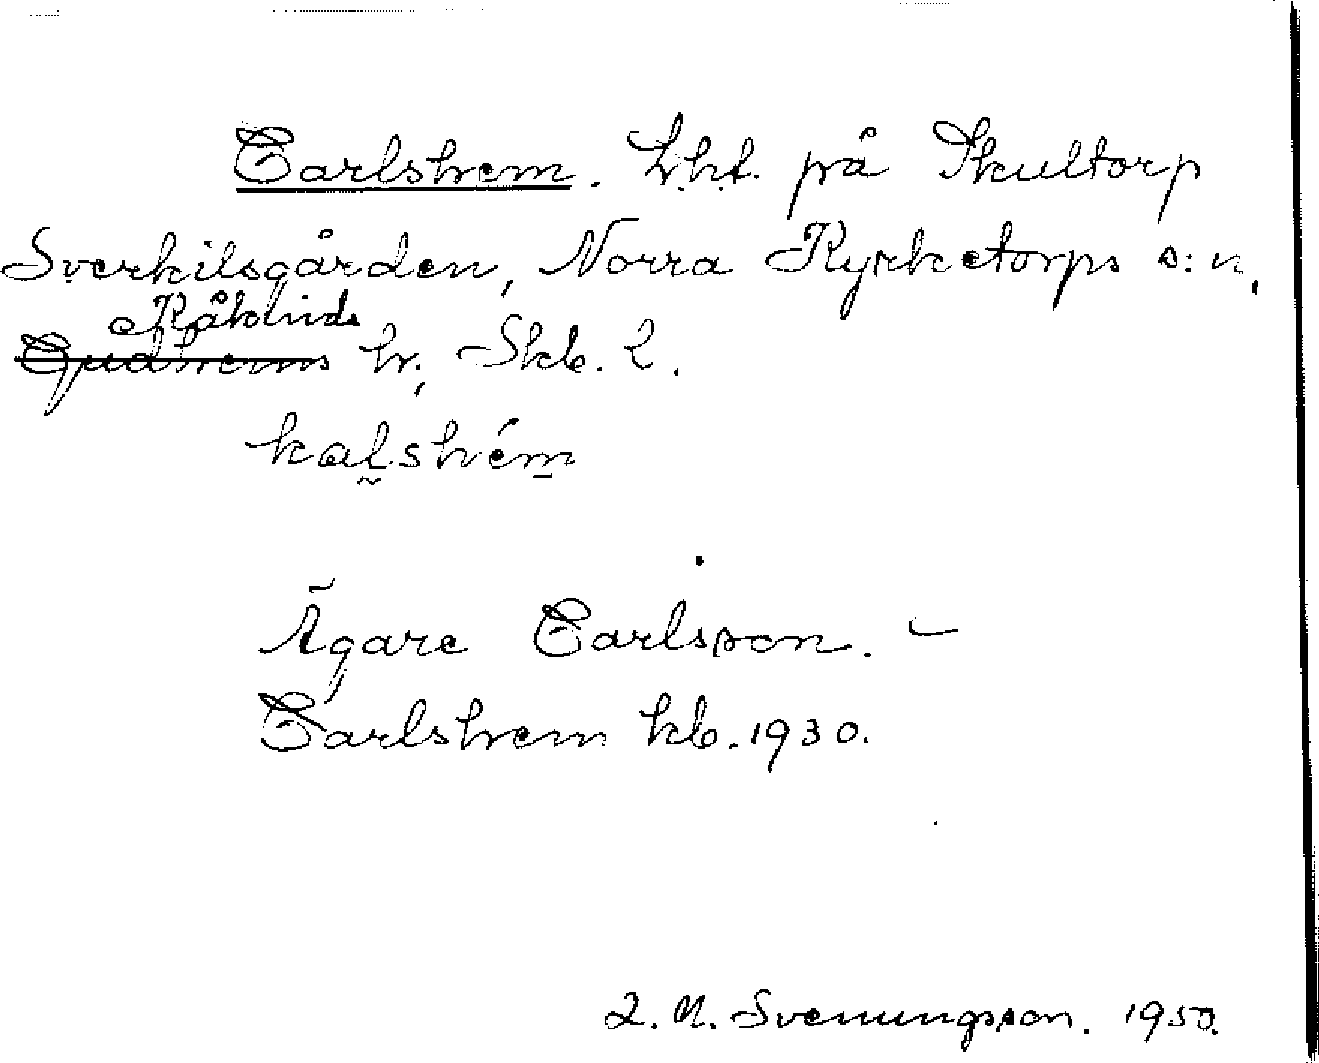 Carlshem. Lht. på Skultorp
Sverkilsgården, Norra Kyrketorps s:n,
Kåkinds
Gudhems hr, Skb. l.
kaḻshém
Ägare Carlsson. –
Carlshem kb. 1930.
L. M. Svenungsson. 1950.